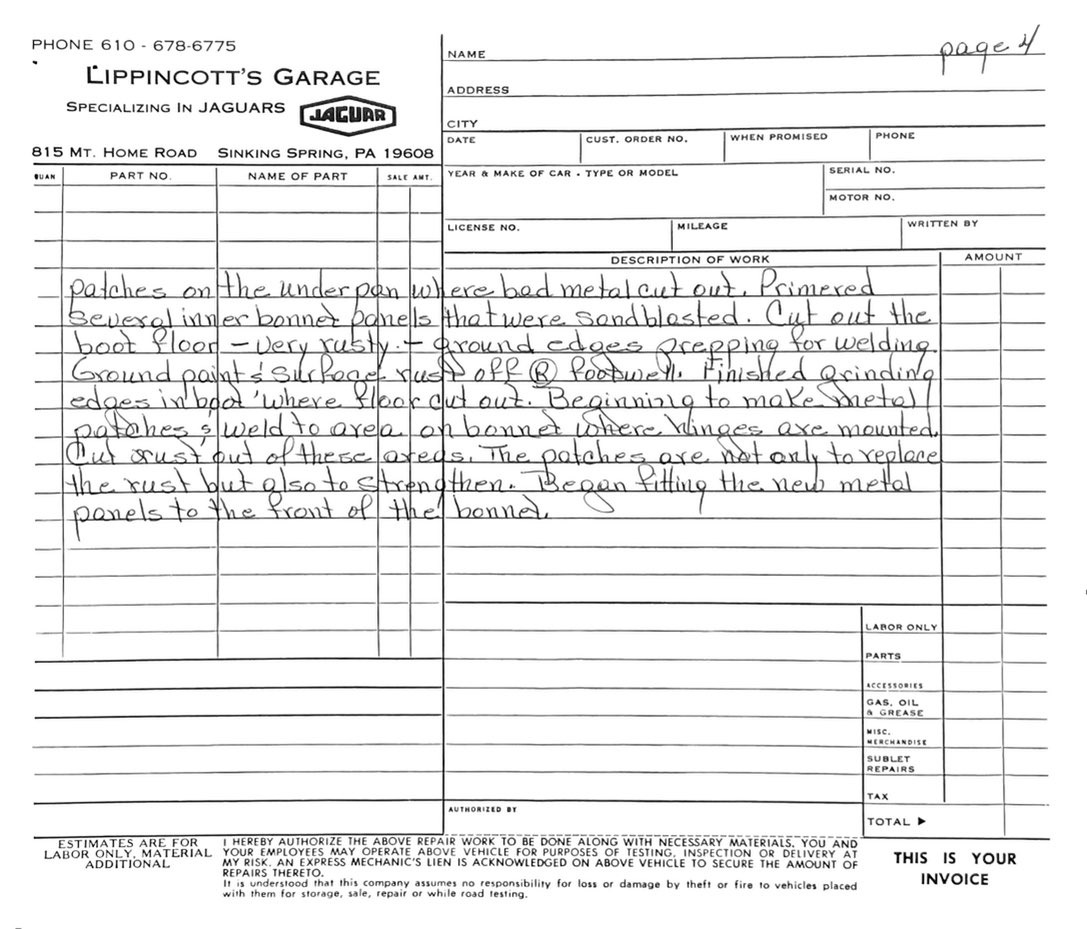 PHONE 610 - 678-6775
LIPPINCOTT'S GARAGE
SPECIALIZING IN JAGUARS JAGUAR
815 MT. HOME ROAD SINKING SPRING, PA 19608
NAME page 4
ADDRESS
CITY
DATE CUST. ORDER NO. WHEN PROMISED PHONE
YEAR & MAKE OF CAR - TYPE OR MODEL SERIAL NO.
MOTOR NO.
LICENSE NO. MILEAGE WRITTEN BY
QUAN PART NO. NAME OF PART SALE AMT.
DESCRIPTION OF WORK AMOUNT
patches on the underpan where bad metal cut out. Primered
several inner bonnet panels that were sandblasted. Cut out the
boot floor - very rusty - ground edges prepping for welding.
Ground paint & surface rust off Ⓡ footwell. Finished grinding
edges in boot where floor cut out. Beginning to make metal
patches & weld to area on bonnet where hinges are mounted.
Cut rust out of these areas. The patches are not only to replace
the rust but also to strengthen. Began fitting the new metal
panels to the front of the bonnet.
LABOR ONLY
PARTS
ACCESSORIES
GAS, OIL
& GREASE
MISC.
MERCHANDISE
SUBLET
REPAIRS
TAX
AUTHORIZED BY
TOTAL ▶
ESTIMATES ARE FOR
LABOR ONLY, MATERIAL
ADDITIONAL
I HEREBY AUTHORIZE THE ABOVE REPAIR WORK TO BE DONE ALONG WITH NECESSARY MATERIALS. YOU AND
YOUR EMPLOYEES MAY OPERATE ABOVE VEHICLE FOR PURPOSES OF TESTING, INSPECTION OR DELIVERY AT
MY RISK. AN EXPRESS MECHANIC'S LIEN IS ACKNOWLEDGED ON ABOVE VEHICLE TO SECURE THE AMOUNT OF
REPAIRS THERETO.
It is understood that this company assumes no responsibility for loss or damage by theft or fire to vehicles placed
with them for storage, sale, repair or while road testing.
THIS IS YOUR
INVOICE